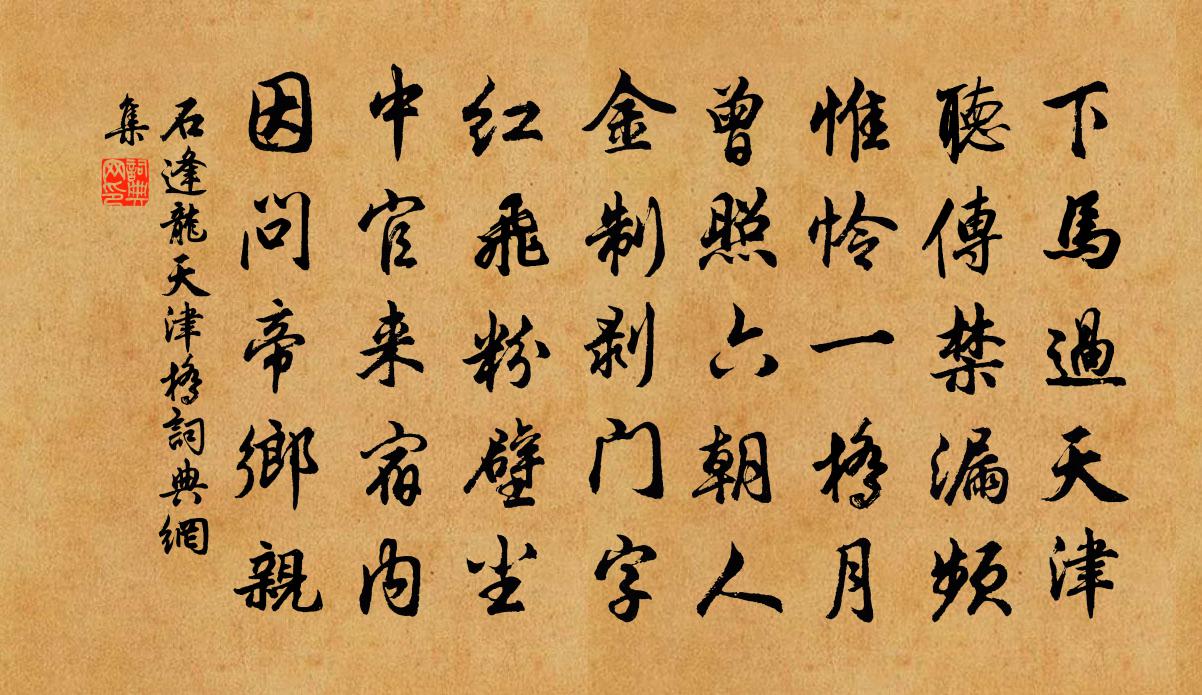 下馬過天津
聽傳禁漏頻
惟怜一橋月
曾照六朝人
金制剥门字
红飛粉壁尘
中官来宿内
因问帝鄉親
石逢龍天津橋詞典網
集
詞典网印